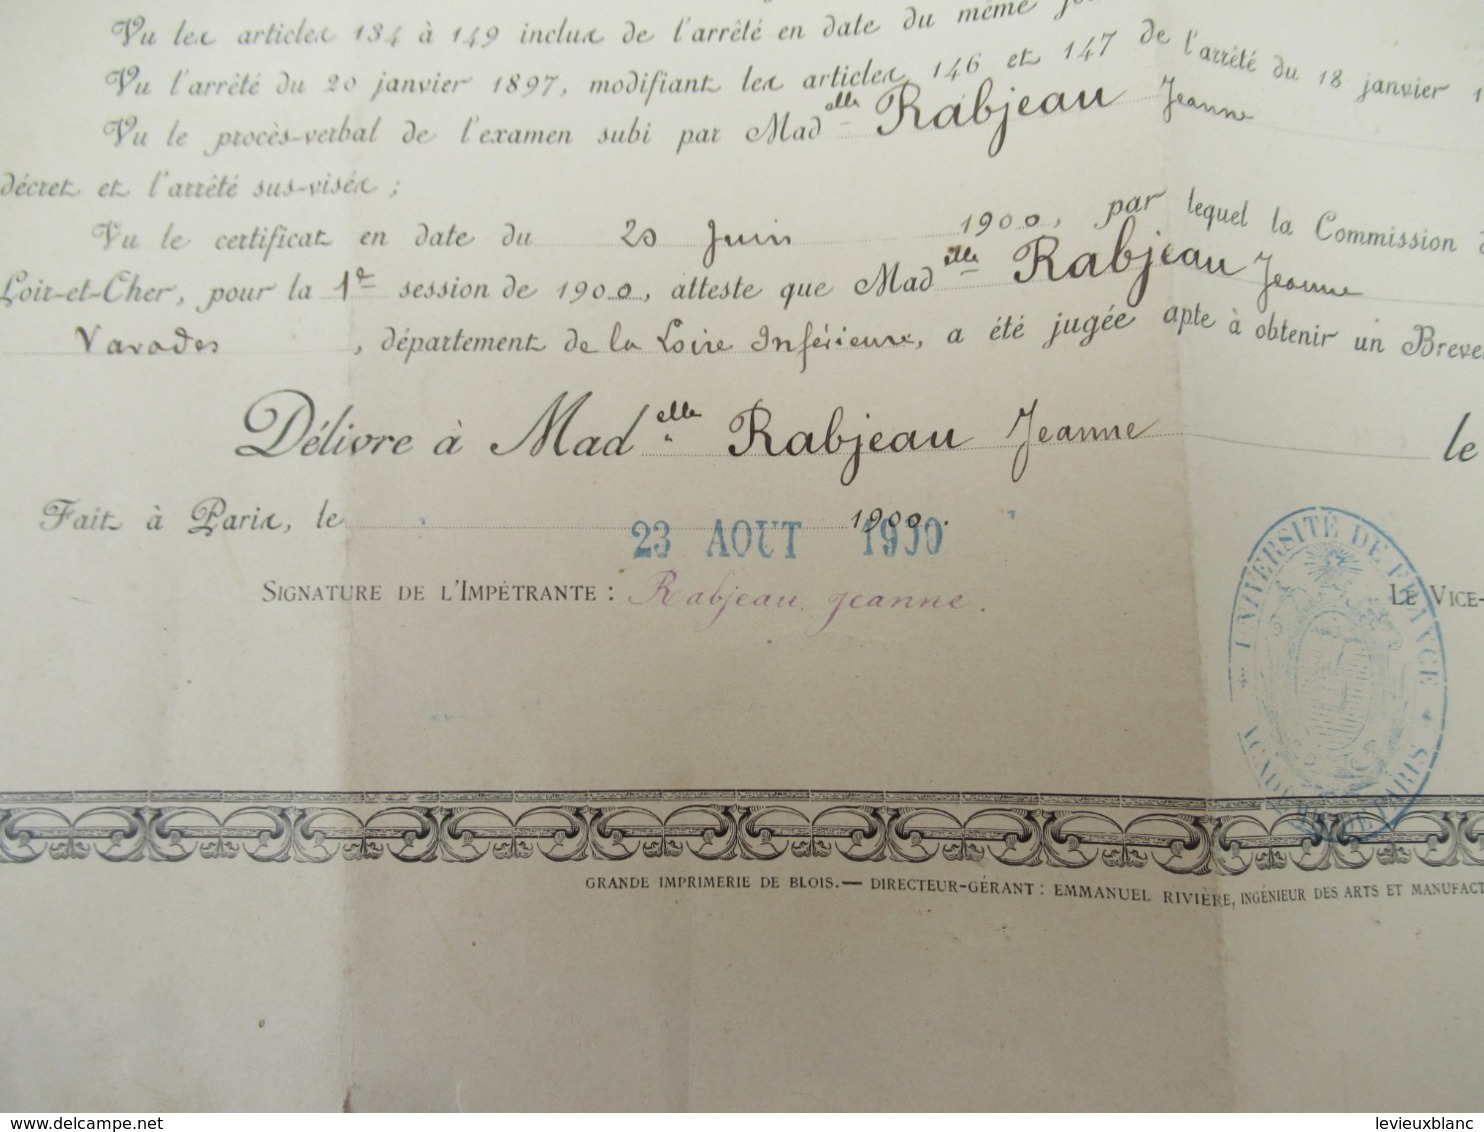 Vu les articles 134 à 149 inclus de l'arrêté en date du même
Vu l'arrêté du 20 janvier 1897, modifiant les articles 146 et 147 de l'arrêté du 18 janvier
Vu le procès-verbal de l'examen subi par Madelle Rabjeau Jeanne
décret et l'arrêté sus-visés ;
Vu le certificat en date du 20 Juin 1900, par lequel la Commission
Loir-et-Cher, pour la 1re session de 1900, atteste que Madelle Rabjeau Jeanne
Varades, département de la Loire Inférieure, a été jugée apte à obtenir un Breve
Délivre à Madelle Rabjeau Jeanne le
Fait à Paris, le 1900.
23 AOUT 1900
SIGNATURE DE L'IMPÉTRANTE : Rabjeau Jeanne.
LE VICE-
UNIVERSITÉ DE FRANCE
ACADÉMIE DE PARIS
GRANDE IMPRIMERIE DE BLOIS.— DIRECTEUR-GÉRANT : EMMANUEL RIVIÈRE, INGÉNIEUR DES ARTS ET MANUFACT
delcampe.net
levieuxblanc